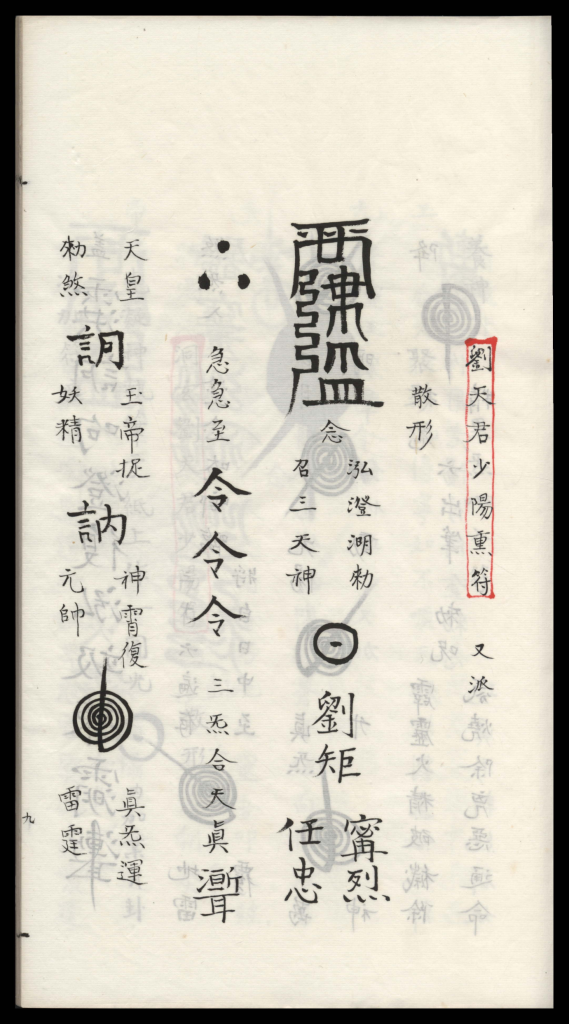 劉天君少陽熏符
又派
散形
念
泓澄溯勑
召三天神
劉矩
寗烈
任忠
急急至
令令令
三炁合天真
天皇
勑煞
玉帝捉
妖精
訥
神霄復
元帥
眞炁運
雷霆
九